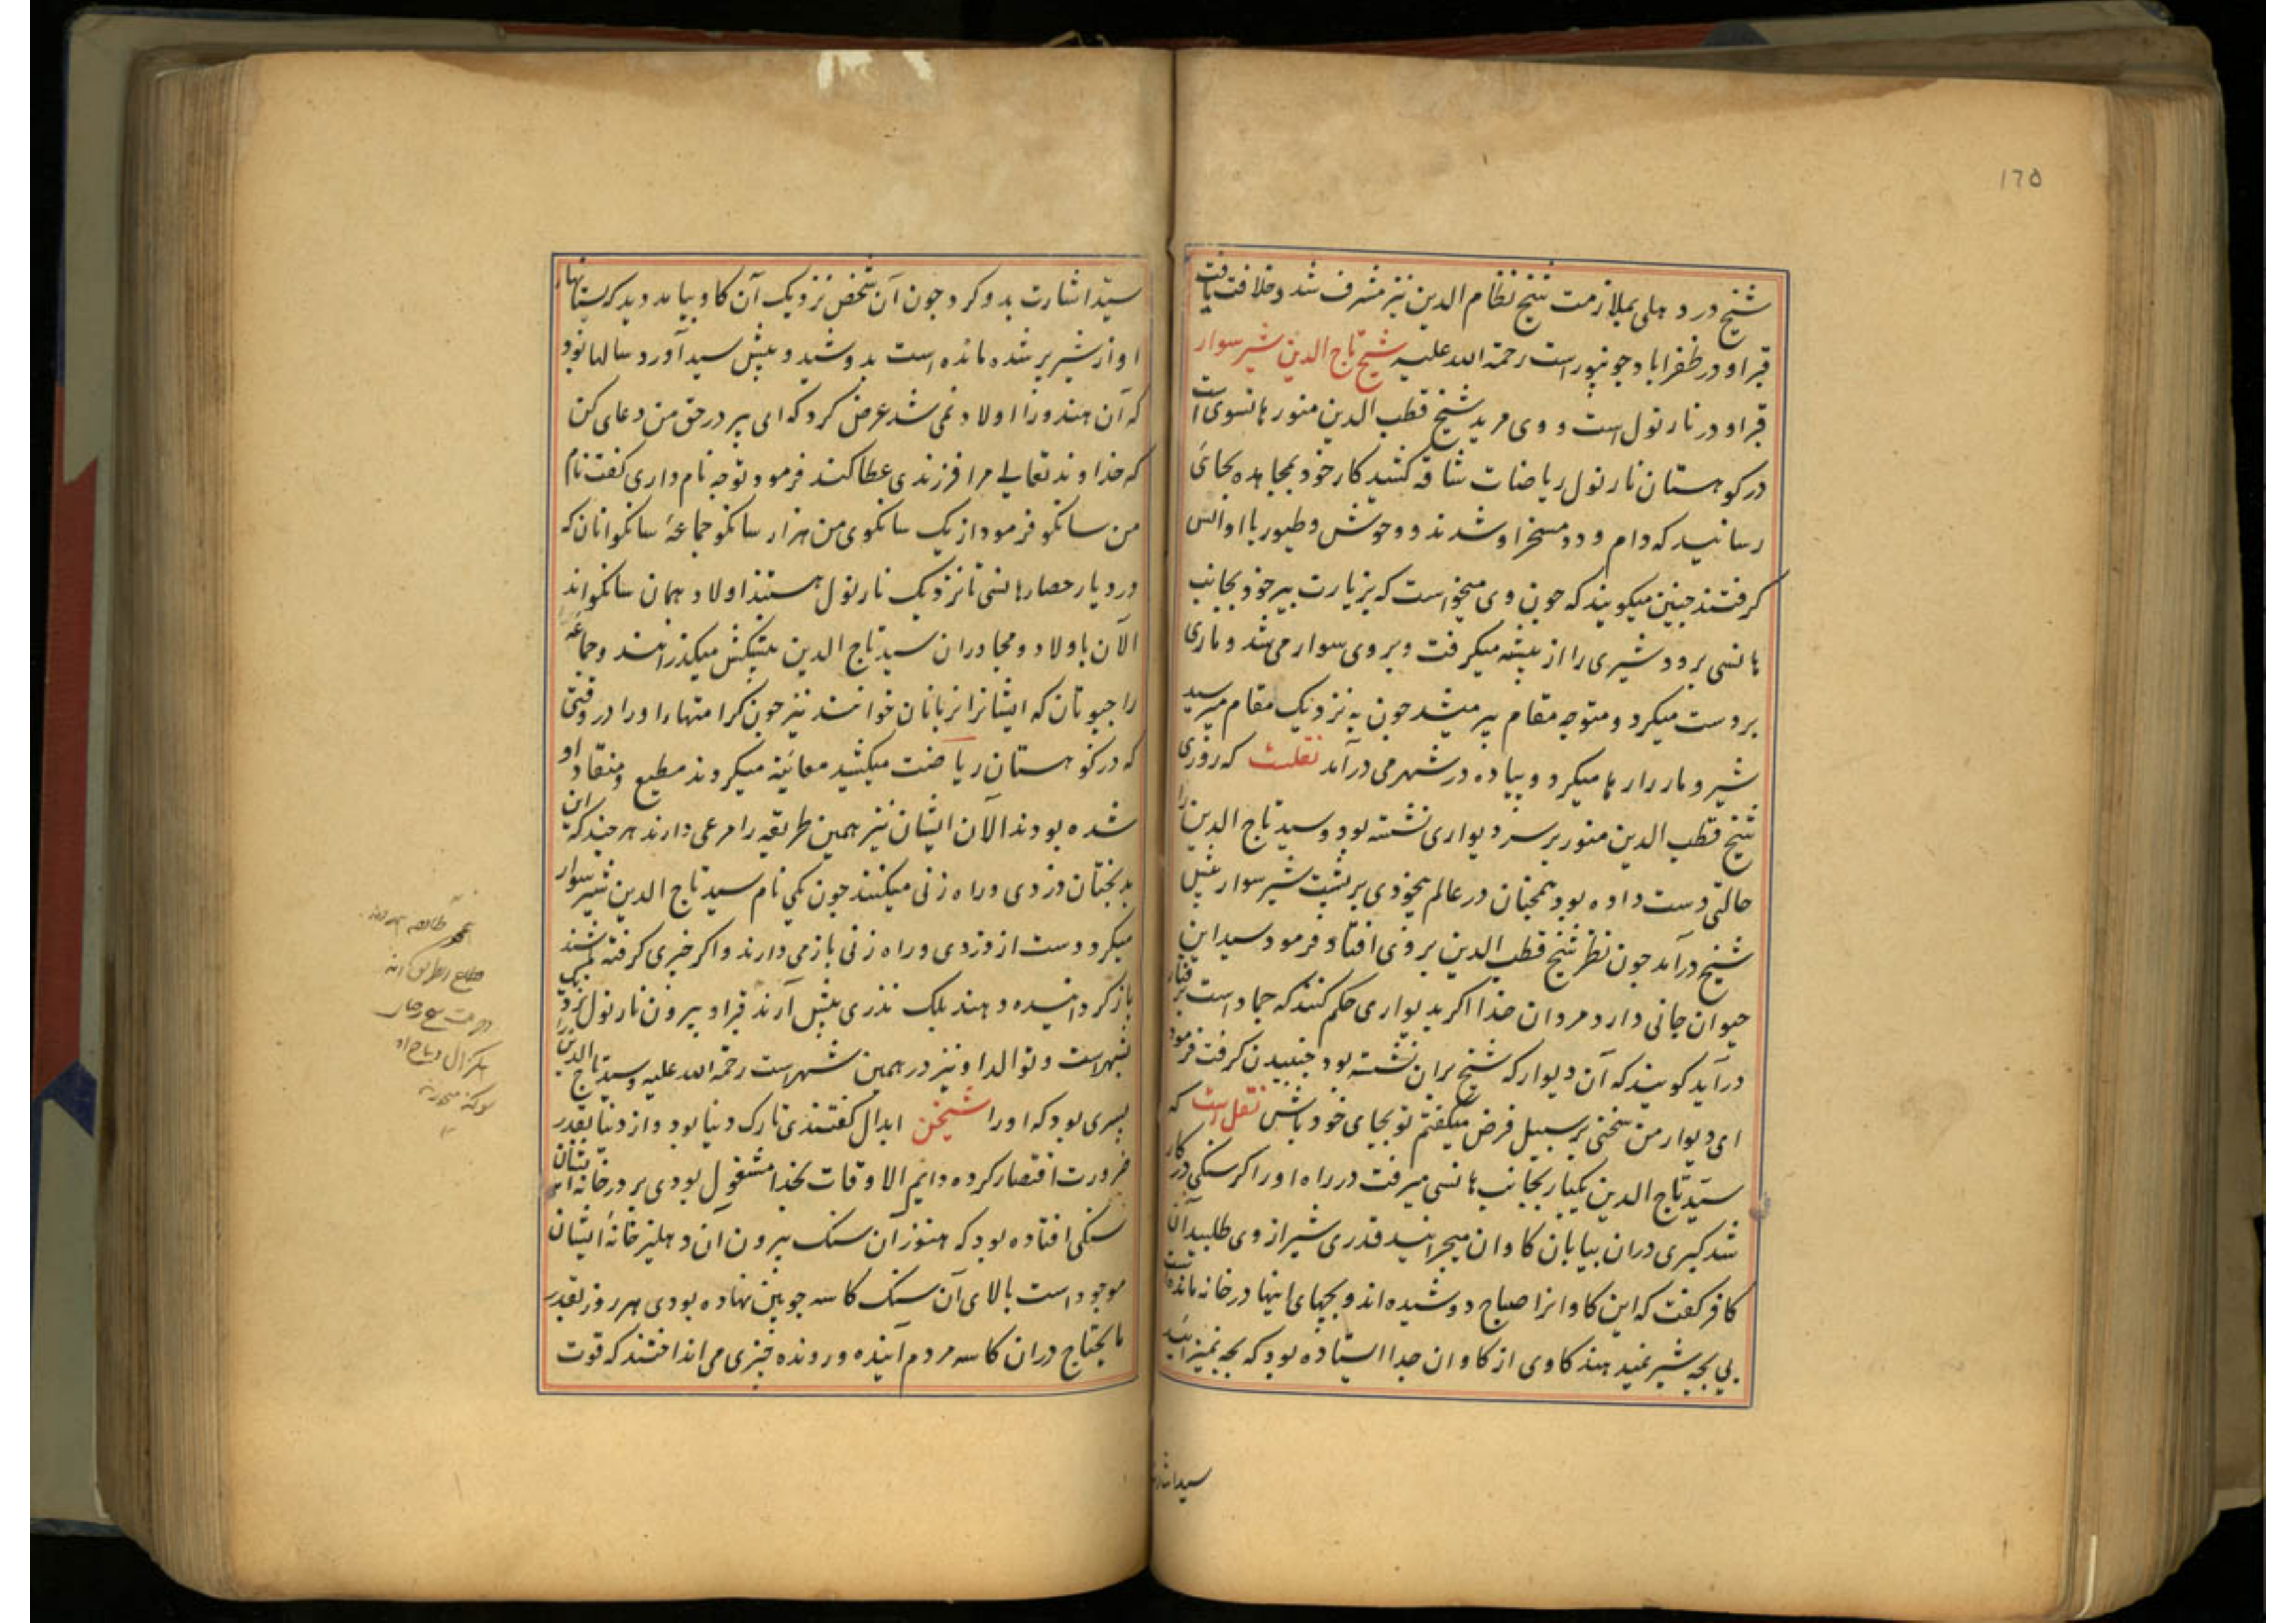 ١٦٥
شیخ در دهلی بملازمت شیخ نظام الدین نیز مشرف شد و خلافت یافت
قبر او در ظفراباد جونپور است رحمة الله علیه شیخ تاج الدین شیر سوار
قبر او در نارنول است و وی مرید شیخ قطب الدین منور هانسوی است
در کوهستان نارنول ریاضات شاقه کشید کار خود بمجاهده بجائ
رسانید که دام و دد مسخر او شدند و وحوش و طیور با او انس
کرفتند جنین میکویند که جون وی میخواست که بزیارت پیر خود بجانب
هانسی برود شیری را از بیشه میکرفت و بروی سوار می شد و ماری
بر دست میکرد و متوجه مقام پیر میشد جون به نزدیک مقام میرسید
شیر و مار را رها میکرد و پیاده در شهر می درآمد نقلست که روزی
شیخ قطب الدین منور بر سر دیواری نشسته بود و سید تاج الدین را
حالتی دست داده بود همجنان در عالم بیخودی بر پشت شیر سوار
شیخ درآمد جون نظر شیخ قطب الدین بر وی افتاد فرمود سید این
حیوان جانی دارد مردان خدا اکر بدیواری حکم کنند که جماد است برفتار
درآید کویند که آن دیوار که شیخ بران نشسته بود جنبیدن کرفت فرمود
ای دیوار من سخنی بر سبیل فرض میکفتم تو بجای خود باش نقل است که
سید تاج الدین یکبار بجانب هانسی میرفت در راه او را کرسنکی در کار
شد کبری دران بیابان کاوان میجرانید قدری شیر از وی طلبید آن
کافر کفت که این کاوانرا صباح دوشیده اند و بجهای اینها در خانه مانده است
بی بجه شیر نمیدهند کاوی از کاوان جدا ایستاده بود که بجه نمیزائید
سید اشارت
سید اشارت بدو کرد جون آن شخص نزدیک آن کاو بیامد دید که پستانها
او از شیر پر شده مانده است بدوشید و پیش سید آورد سالها بود
که آن هندو را اولاد نمی شد عرض کرد که ای پیر در حق من دعای کن
که خداوند تعالی مرا فرزندی عطا کند فرمود تو جه نام داری کفت نام
من سانکو فرمود از یک سانکوی من هزار سانکو جماعهٔ سانکوانان که
در دیار حصار هانسی تا نزدیک نارنول هستند اولاد همان سانکو اند
الآن باولاد و مجاوران سید تاج الدین پیشکش میکذرانند و جماعه
راجپوتان که ایشانرا نربانان خوانند نیز جون کرامتها را او را در وقتی
که در کوهستان ریاضت میکشید معائنه میکردند مطیع و منقاد او
شده بودند الآن ایشان نیز همین طریقه را مرعی دارند هر جند که این
بدبختان دزدی و راه زنی میکنند جون یکی نام سید تاج الدین شیر سوار
میکرد دست از دزدی و راه زنی باز می دارند و اکر جیزی کرفته باشند
باز کردانیده دهند بلک نذری پیش آرند قبر او بیرون نارنول نزدیک
شهر است و توالد او نیز در همین شهر است رحمة الله علیه و سید تاج الدین را
پسری بود که او را شیخن ابدال کفتندی تارک دنیا بود و از دنیا بقدر
ضرورت اقتصار کرده دایم الاوقات بخدا مشغول بودی بر در خانه ایشان
سنکی افتاده بود که هنوز آن سنک بیرون آن دهلیز خانهٔ ایشان
موجود است بالای آن سنک کاسه جوبین نهاده بودی هر روز بقدر
مایحتاج دران کاسه مردم آینده و رونده جیزی می انداختند که قوت